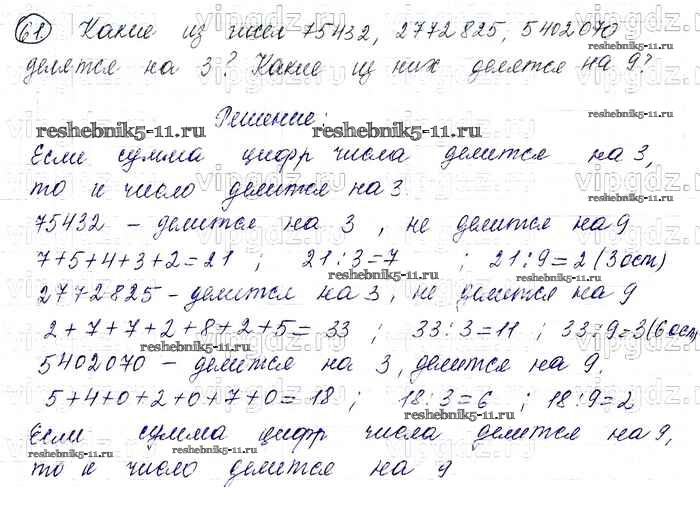 61 Какие из чисел 75432, 2772825, 5402070
делятся на 3? Какие из них делятся на 9?
Решение:
Если сумма цифр числа делится на 3,
то и число делится на 3.
75432 – делится на 3, не делится на 9
7+5+4+3+2=21 ; 21:3=7 ; 21:9=2(3ост)
2772825 – делится на 3, не делится на 9
2+7+7+2+8+2+5=33 ; 33:3=11 ; 33:9=3(6ост)
5402070 – делится на 3, делится на 9.
5+4+0+2+0+7+0=18 ; 18:3=6 ; 18:9=2
Если сумма цифр числа делится на 9,
то и число делится на 9
reshebnik5-11.ru
reshebnik5-11.ru
reshebnik5-11.ru
reshebnik5-11.ru
reshebnik5-11.ru
reshebnik5-11.ru
reshebnik5-11.ru
reshebnik5-11.ru